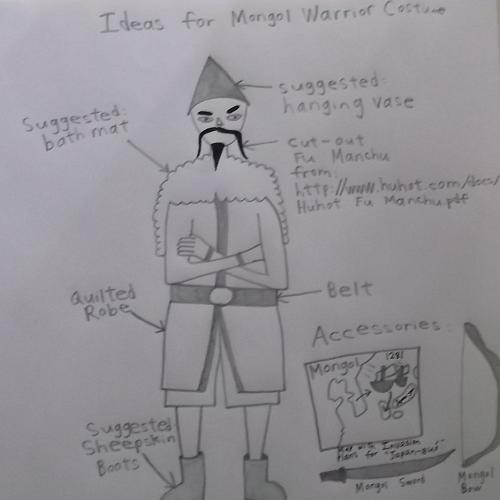 Ideas for Mongol Warrior Costume
suggested:
hanging vase
Suggested:
bath mat
cut-out
Fu Manchu
from:
http://www.huhot.com/docs/
Huhot Fu Manchu.pdf
Quilted
Robe
Belt
Accessories:
Mongol
1281
Map with Invasion
Plans for "Japan-gud"
Suggested
Sheepskin
Boots
Mongol Sword
Mongol
Bow